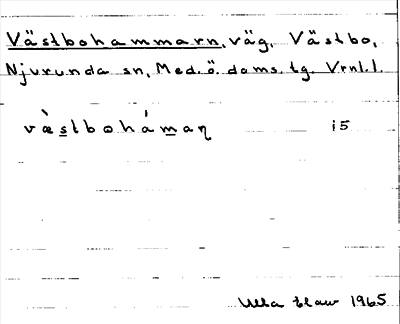 Västbohammarn, väg, Västbo,
Njurunda sn, Med. ö. doms. tg. Vrnl. l.
væ̀stbohámaɳ i5
Ulla 1965